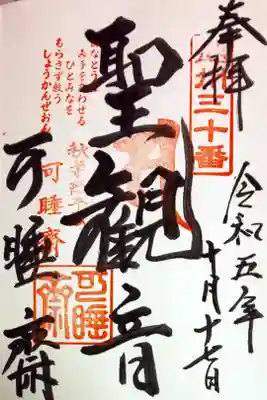 奉拝
三十番
令和五年
十月十七日
聖観音
みなとう
みきをあわせる
ひとみなを
もらさず救う
しょうかんぜおん
秋葉
可睡齋
可睡齋
可睡齋